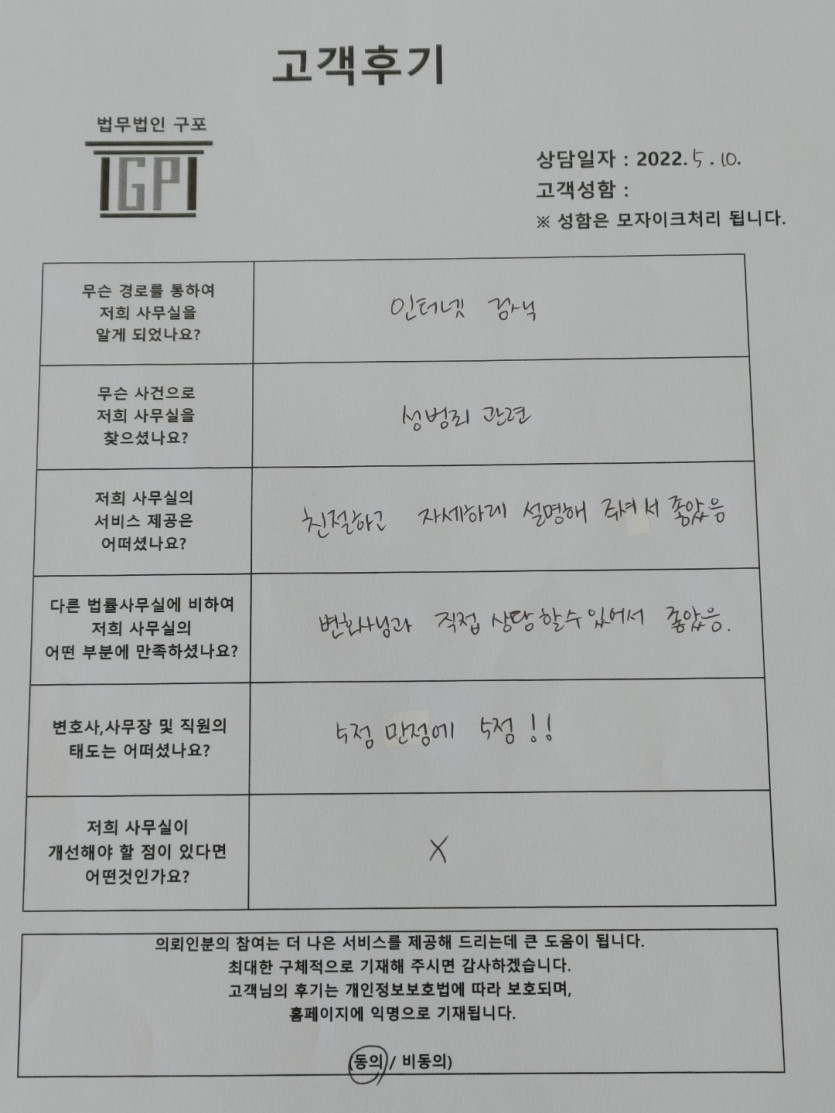 고객후기
법무법인 구포
IGPI
상담일자 : 2022. 5. 10.
고객성함 :
※ 성함은 모자이크처리 됩니다.
무슨 경로를 통하여
저희 사무실을
알게 되었나요?
인터넷 검색
무슨 사건으로
저희 사무실을
찾으셨나요?
성범죄 관련
저희 사무실의
서비스 제공은
어떠셨나요?
친절하고 자세하게 설명해 주셔서 좋았음
다른 법률사무실에 비하여
저희 사무실의
어떤 부분에 만족하셨나요?
변호사님과 직접 상담할수있어서 좋았음.
변호사,사무장 및 직원의
태도는 어떠셨나요?
5점 만점에 5점!!
저희 사무실이
개선해야 할 점이 있다면
어떤것인가요?
X
의뢰인분의 참여는 더 나은 서비스를 제공해 드리는데 큰 도움이 됩니다.
최대한 구체적으로 기재해 주시면 감사하겠습니다.
고객님의 후기는 개인정보보호법에 따라 보호되며,
홈페이지에 익명으로 기재됩니다.
(동의 / 비동의)